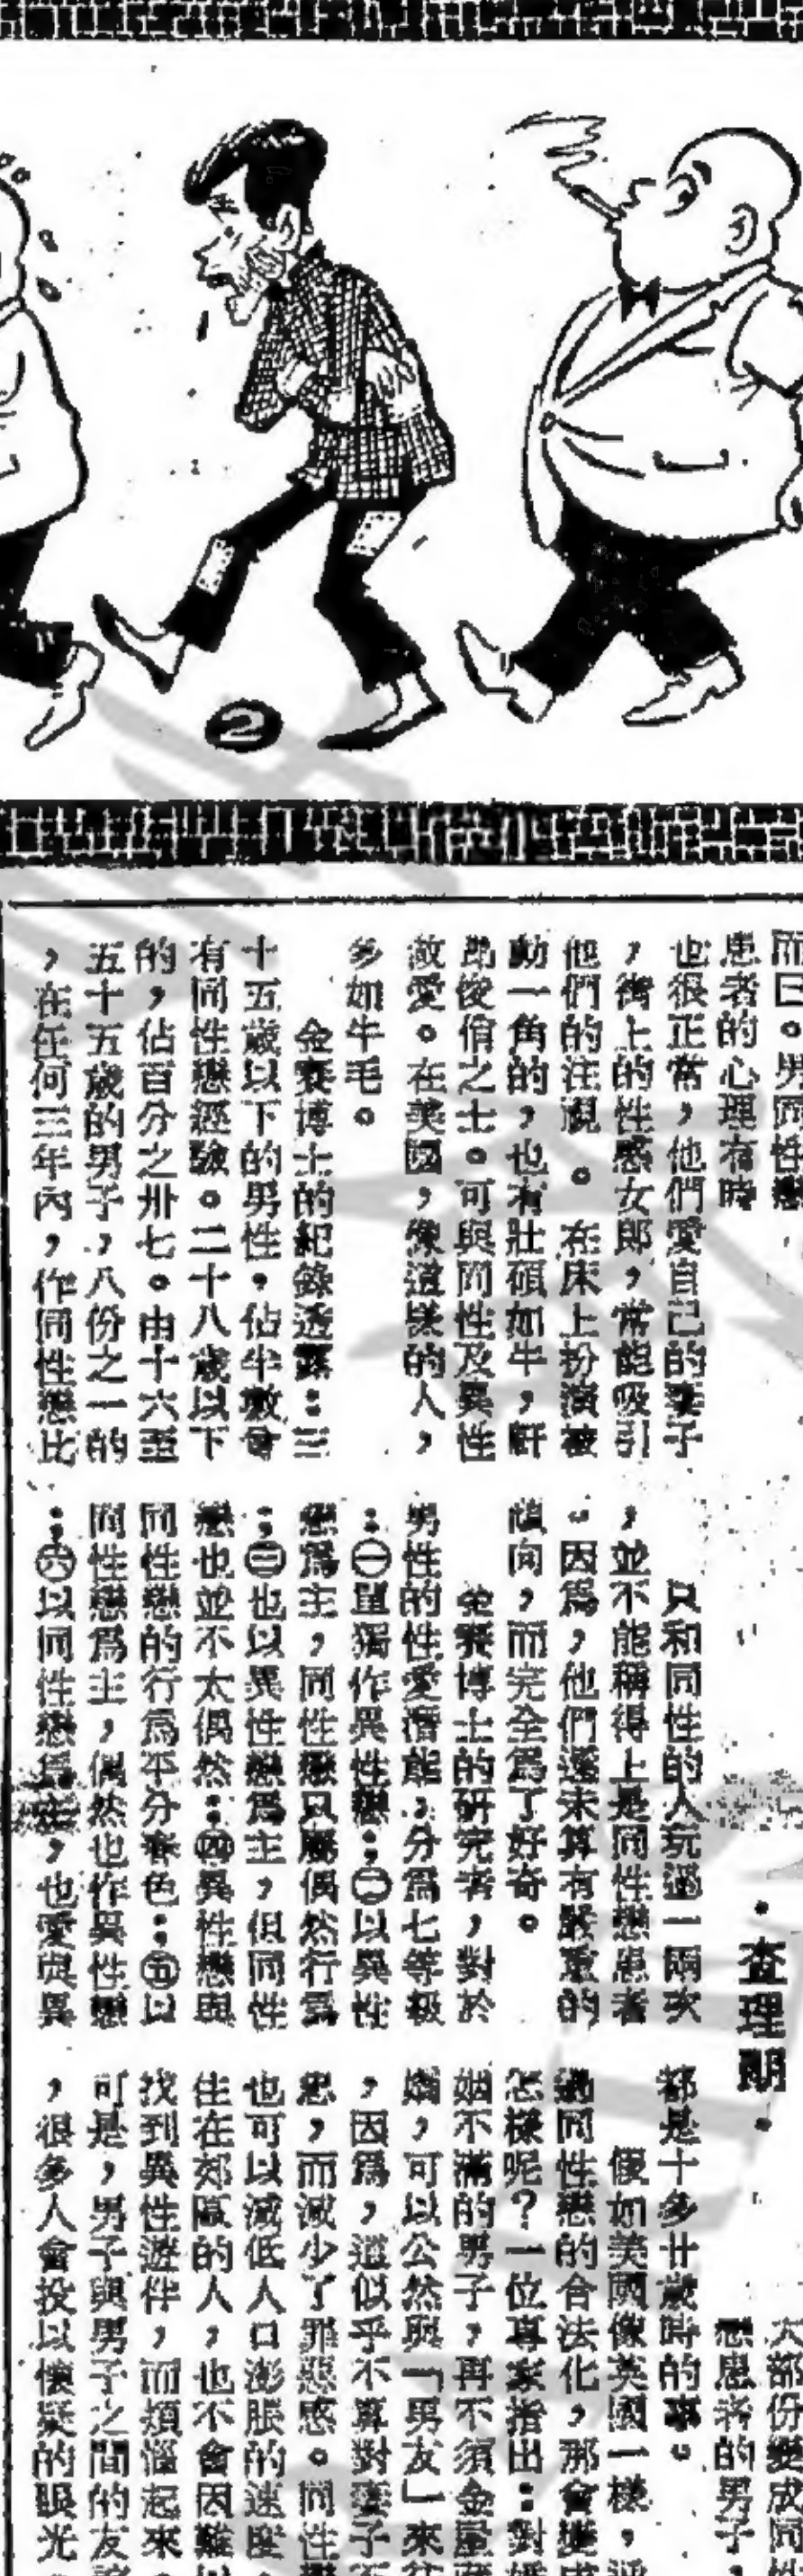 2
而已。男同性戀
患者的心理有時
也很正常，他們愛自己的妻子
，街上的性感女郎，常能吸引
他們的注視。在床上扮演被
動一角的，也有壯碩如牛，軒
昂俊俏之士。可與同性及異性
故愛。在美國，像這樣的人，
多如牛毛。
金賽博士的紀錄透露：三
十五歲以下的男性，佔半數會
有同性戀經驗。二十八歲以下
的，佔百分之卅七。由十六至
五十五歲的男子，八份之一的
，在任何三年內，作同性戀比
·查理明·
只和同性的人玩過一兩次
，並不能稱得上是同性戀患者
。因為，他們還未算有嚴重的
傾向，而完全為了好奇。
金賽博士的研究者，對於
男性的性愛潛能，分為七等級
：㊀單獨作異性戀；㊁以異性
戀為主，同性戀只屬偶然行為
；㊂也以異性戀為主，但同性
戀也並不太偶然；㊃異性戀與
同性戀的行為平分春色；㊄以
同性戀為主，偶然也作異性戀
；㊅以同性戀為主，也愛與異
大部份變成同性
戀患者的男子
都是十多廿歲時的事。
便如美國像英國一樣，
同性戀的合法化，那會變成
怎樣呢？一位專家指出：對婚
姻不滿的男子，再不須金屋藏
嬌，可以公然與「男友」來往
，因為，這似乎不算對妻子不
忠，而減少了罪惡感。同性戀
也可以減低人口澎脹的速度，
住在郊區的人，也不會因難以
找到異性遊伴，而煩惱起來，
可是，男子與男子之間的友誼
，很多人會投以懷疑的眼光，